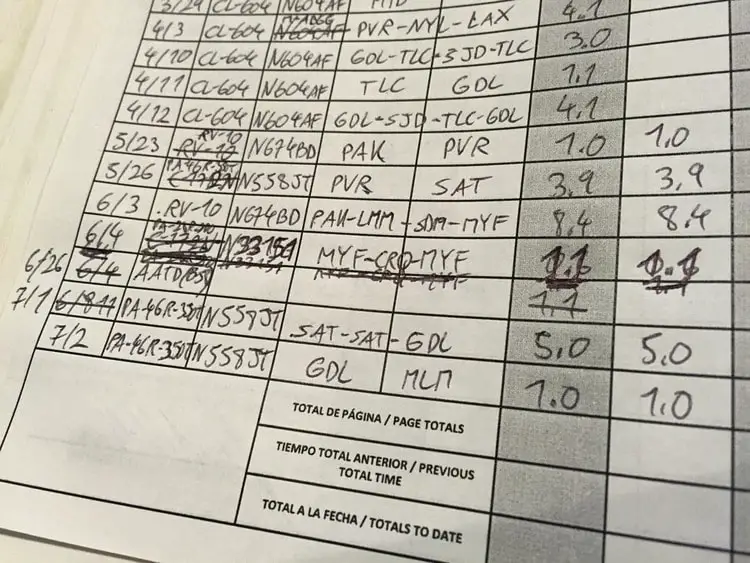 3/29 CL-604 N604AF 4.1
4/3 CL-604 PVR-NYL-LAX 3.0
4/10 CL-604 N604AF GDL-TLC-SJD-TLC 1.1
4/11 CL-604 N604AF TLC GDL 4.1
4/12 CL-604 N604AF GDL-SJD-TLC-GDL
5/23 RV-10 N674BD PAK PVR 1.0 1.0
5/26 PA-46R-350T N558JT PVR SAT 3.9 3,9
6/3 RV-10 N674BD PAK-LMM-SDM-MYF 8.4 8.4
6/4 N33151 MYF-CRQ-MYF 1.1 1.1
6/26 6/4 AATD(BS) 1.1
7/1 PA-46R-350T N558JT SAT-SAT-GDL 5.0 5,0
7/2 PA-46R-350T N558JT GDL MLM 1.0 1.0
TOTAL DE PÁGINA / PAGE TOTALS
TIEMPO TOTAL ANTERIOR / PREVIOUS
TOTAL TIME
TOTAL A LA FECHA / TOTALS TO DATE